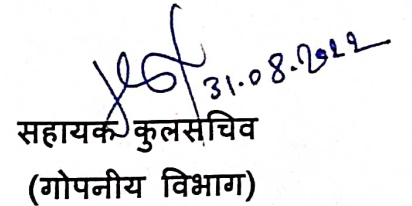 31.08.2022
सहायक कुलसचिव
(गोपनीय विभाग)